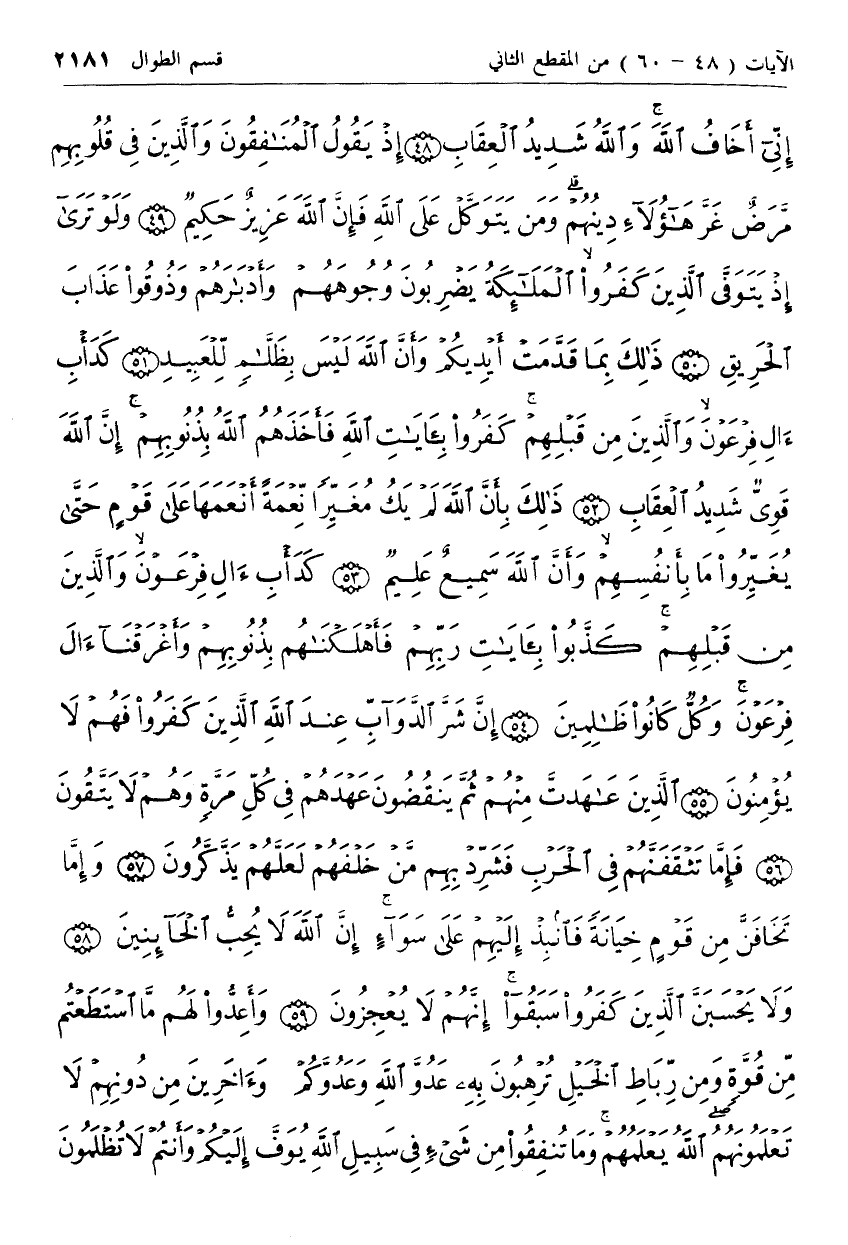 الآيات ( ٤٨ - ٦٠ ) من المقطع الثاني قسم الطوال ٢١٨١
إِنِّىٓ أَخَافُ ٱللَّهَ ۚ وَٱللَّهُ شَدِيدُ ٱلْعِقَابِ ﴿٤٨﴾ إِذْ يَقُولُ ٱلْمُنَٰفِقُونَ وَٱلَّذِينَ فِى قُلُوبِهِم
مَّرَضٌ غَرَّ هَٰٓؤُلَآءِ دِينُهُمْ ۗ وَمَن يَتَوَكَّلْ عَلَى ٱللَّهِ فَإِنَّ ٱللَّهَ عَزِيزٌ حَكِيمٌ ﴿٤٩﴾ وَلَوْ تَرَىٰٓ
إِذْ يَتَوَفَّى ٱلَّذِينَ كَفَرُوا۟ ۙ ٱلْمَلَٰٓئِكَةُ يَضْرِبُونَ وُجُوهَهُمْ وَأَدْبَٰرَهُمْ وَذُوقُوا۟ عَذَابَ
ٱلْحَرِيقِ ﴿٥٠﴾ ذَٰلِكَ بِمَا قَدَّمَتْ أَيْدِيكُمْ وَأَنَّ ٱللَّهَ لَيْسَ بِظَلَّٰمٍ لِّلْعَبِيدِ ﴿٥١﴾ كَدَأْبِ
ءَالِ فِرْعَوْنَ ۙ وَٱلَّذِينَ مِن قَبْلِهِمْ ۚ كَفَرُوا۟ بِـَٔايَٰتِ ٱللَّهِ فَأَخَذَهُمُ ٱللَّهُ بِذُنُوبِهِمْ ۚ إِنَّ ٱللَّهَ
قَوِىٌّ شَدِيدُ ٱلْعِقَابِ ﴿٥٢﴾ ذَٰلِكَ بِأَنَّ ٱللَّهَ لَمْ يَكُ مُغَيِّرًا نِّعْمَةً أَنْعَمَهَا عَلَىٰ قَوْمٍ حَتَّىٰ
يُغَيِّرُوا۟ مَا بِأَنفُسِهِمْ ۙ وَأَنَّ ٱللَّهَ سَمِيعٌ عَلِيمٌ ﴿٥٣﴾ كَدَأْبِ ءَالِ فِرْعَوْنَ ۙ وَٱلَّذِينَ
مِن قَبْلِهِمْ ۚ كَذَّبُوا۟ بِـَٔايَٰتِ رَبِّهِمْ فَأَهْلَكْنَٰهُم بِذُنُوبِهِمْ وَأَغْرَقْنَآ ءَالَ
فِرْعَوْنَ ۚ وَكُلٌّ كَانُوا۟ ظَٰلِمِينَ ﴿٥٤﴾ إِنَّ شَرَّ ٱلدَّوَآبِّ عِندَ ٱللَّهِ ٱلَّذِينَ كَفَرُوا۟ فَهُمْ لَا
يُؤْمِنُونَ ﴿٥٥﴾ ٱلَّذِينَ عَٰهَدتَّ مِنْهُمْ ثُمَّ يَنقُضُونَ عَهْدَهُمْ فِى كُلِّ مَرَّةٍ وَهُمْ لَا يَتَّقُونَ
﴿٥٦﴾ فَإِمَّا تَثْقَفَنَّهُمْ فِى ٱلْحَرْبِ فَشَرِّدْ بِهِم مَّنْ خَلْفَهُمْ لَعَلَّهُمْ يَذَّكَّرُونَ ﴿٥٧﴾ وَإِمَّا
تَخَافَنَّ مِن قَوْمٍ خِيَانَةً فَٱنۢبِذْ إِلَيْهِمْ عَلَىٰ سَوَآءٍ ۚ إِنَّ ٱللَّهَ لَا يُحِبُّ ٱلْخَآئِنِينَ ﴿٥٨﴾
وَلَا يَحْسَبَنَّ ٱلَّذِينَ كَفَرُوا۟ سَبَقُوٓا۟ ۚ إِنَّهُمْ لَا يُعْجِزُونَ ﴿٥٩﴾ وَأَعِدُّوا۟ لَهُم مَّا ٱسْتَطَعْتُم
مِّن قُوَّةٍ وَمِن رِّبَاطِ ٱلْخَيْلِ تُرْهِبُونَ بِهِۦ عَدُوَّ ٱللَّهِ وَعَدُوَّكُمْ وَءَاخَرِينَ مِن دُونِهِمْ لَا
تَعْلَمُونَهُمُ ٱللَّهُ يَعْلَمُهُمْ ۚ وَمَا تُنفِقُوا۟ مِن شَىْءٍ فِى سَبِيلِ ٱللَّهِ يُوَفَّ إِلَيْكُمْ وَأَنتُمْ لَا تُظْلَمُونَ